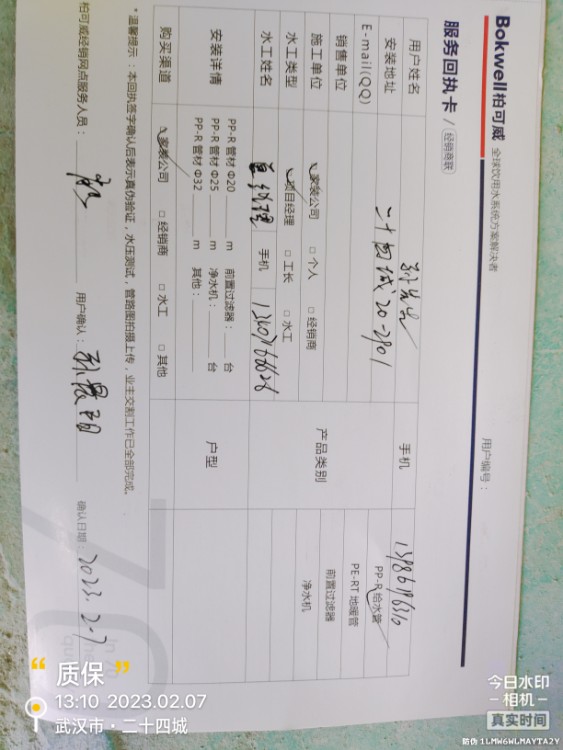 Bokwell柏可威 全球饮用水系统方案解决者
服务回执卡 / 经销商联
用户编号：
用户姓名
手机 13986196310
安装地址 二十四城20-2901
E-mail(QQ)
销售单位
施工单位 家装公司 □ 个人 □ 经销商
水工类型 项目经理 □ 工长 □ 水工
水工姓名 手机
产品类别
PP-R 给水管
PE-RT 地暖管
前置过滤器
净水机
安装详情
PP-R 管材 Φ20 m 前置过滤器： 台
PP-R 管材 Φ25 m 净水机： 台
PP-R 管材 Φ32 m 其他：
户型
购买渠道 家装公司 □ 经销商 □ 水工 □ 其他
* 温馨提示：本回执签字确认后表示真伪验证，水压测试，管路图拍摄上传，业主交割工作已全部完成。
柏可威经销网点服务人员：
用户确认：
确认日期： 2023.2.7
“ 质保 ”
13:10 2023.02.07
武汉市·二十四城
今日水印
相机
真实时间
防伪 1LMW6WLMAYTA2Y